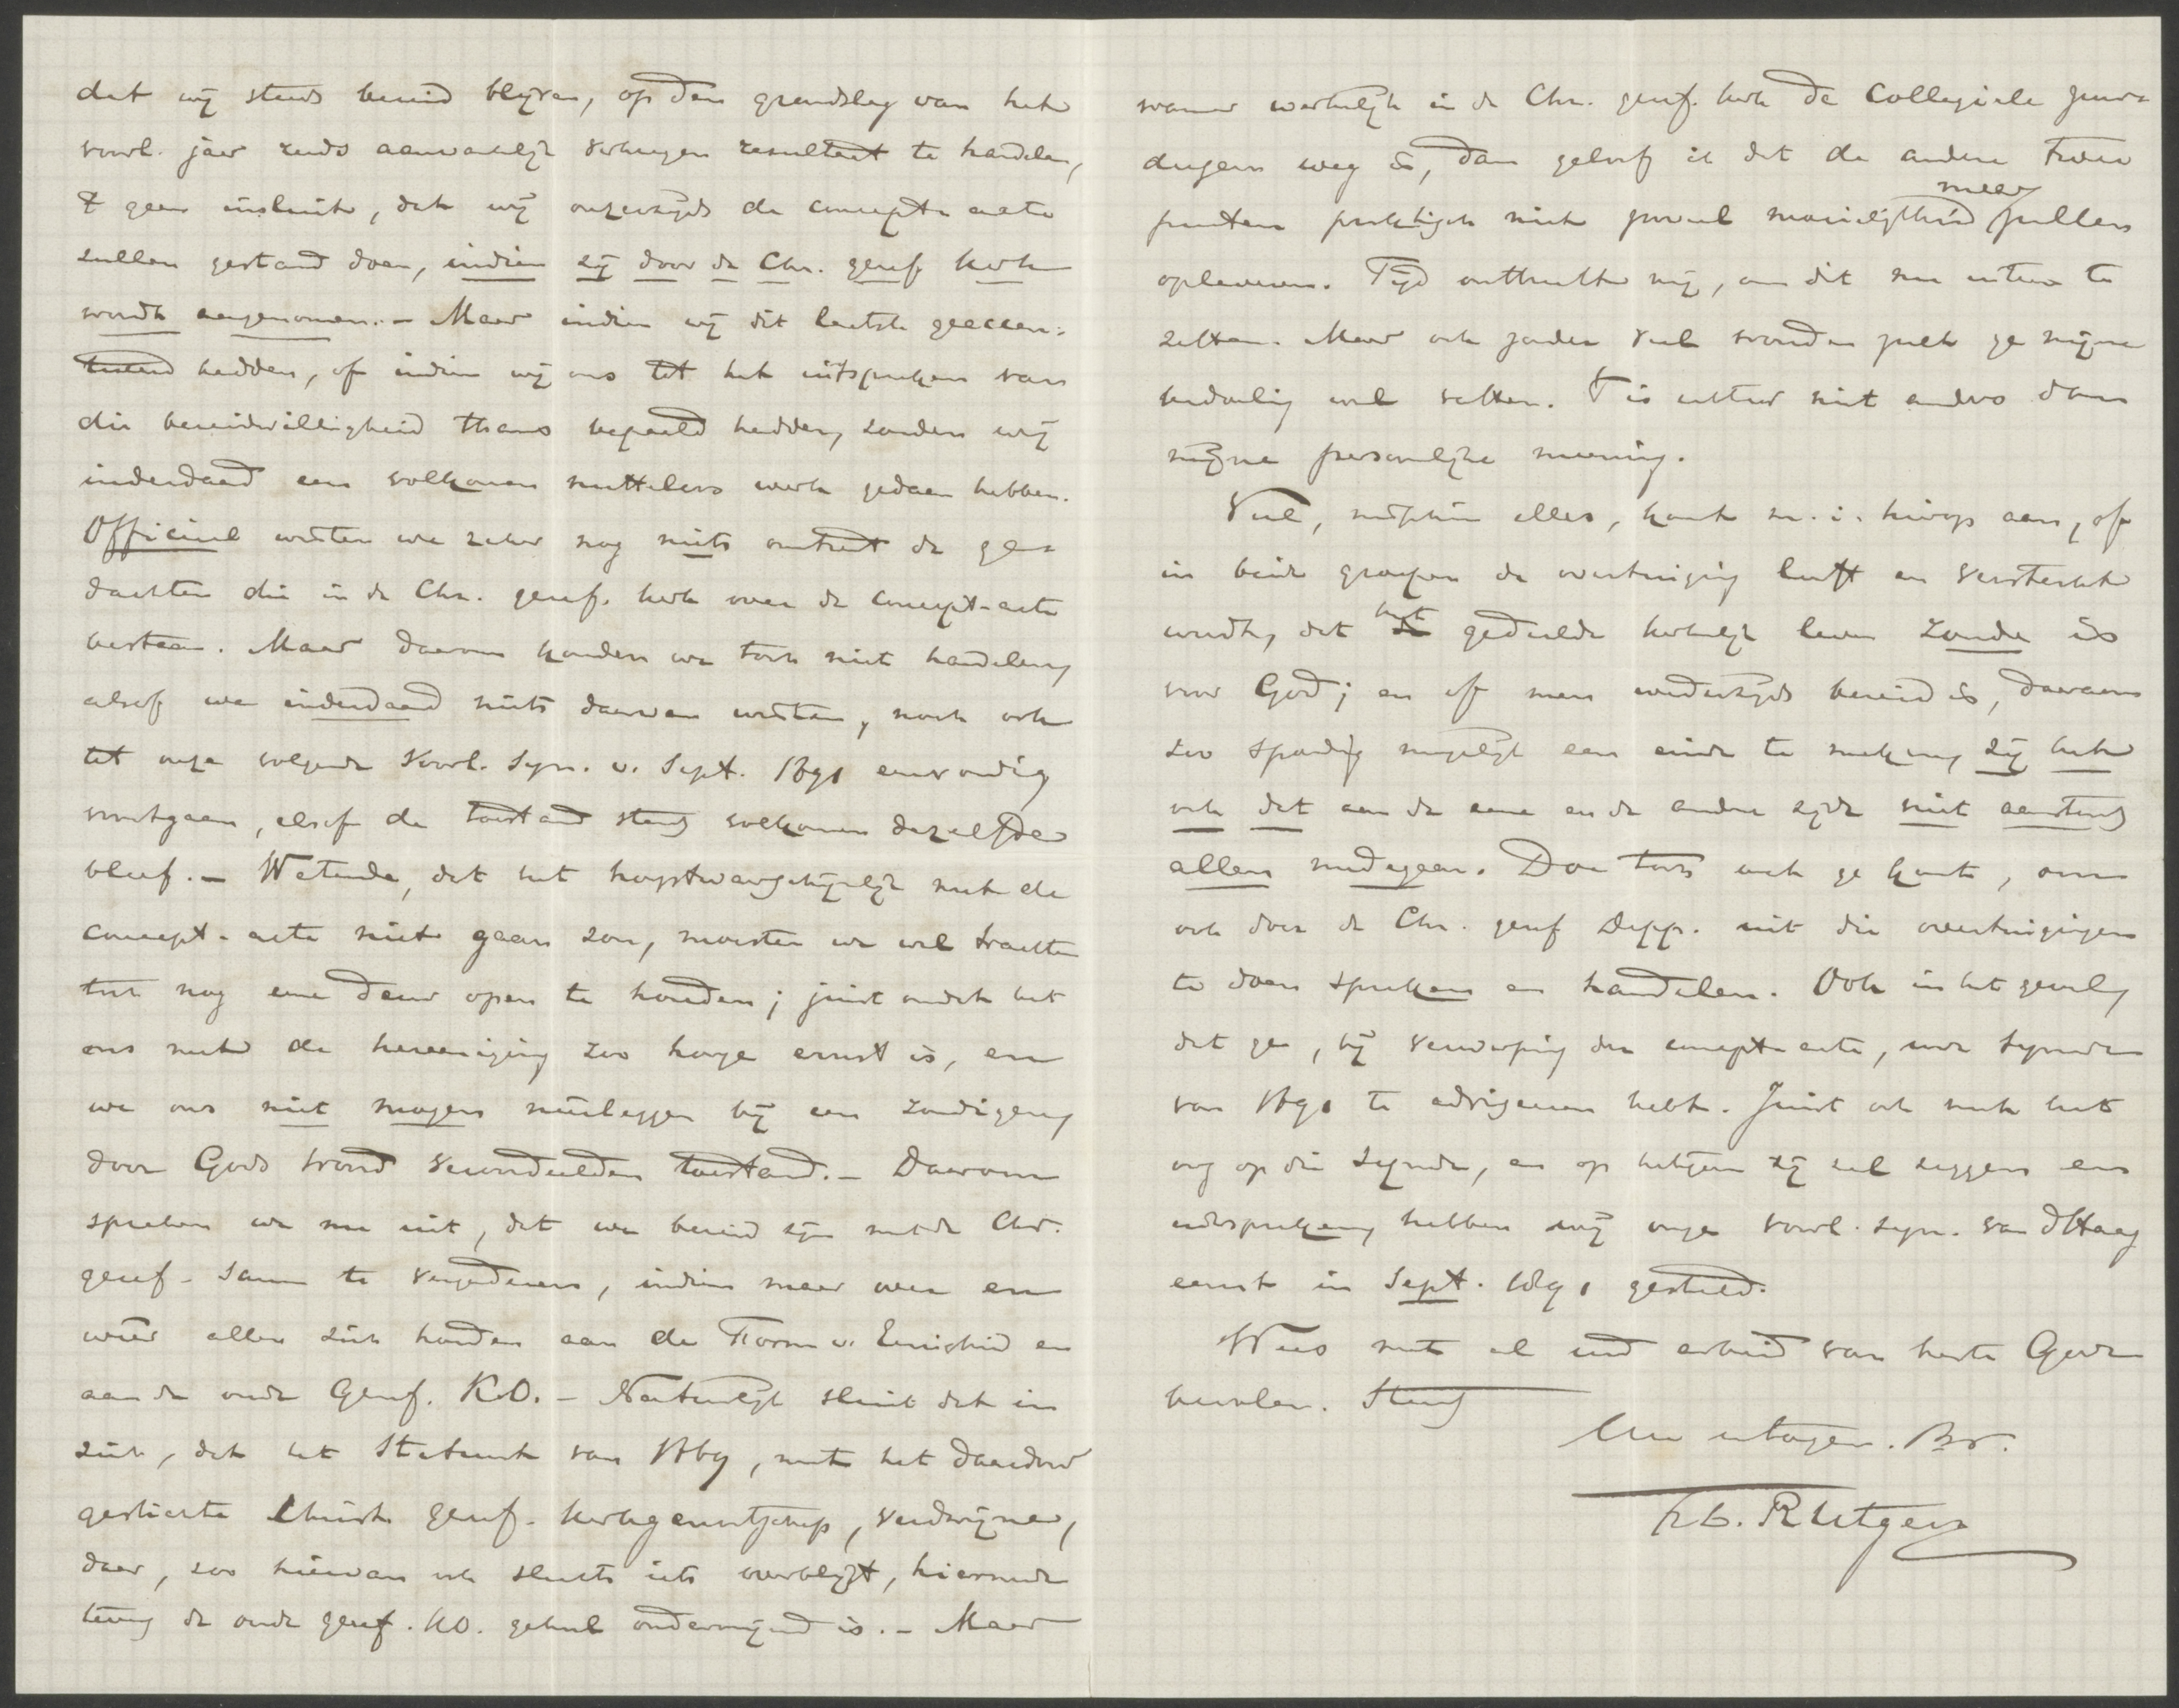 dat wij steeds bereid blijven, op den grondslag van het
voorl. jaar reeds aanvankelijk verkregen resultaat te handelen,
't geen insluit, dat wij onzerzijds de concept-acte
zullen gestand doen, indien zij door de Chr. geref. kerk
wordt aangenomen. – Maar indien wij dit laatste geaccen-
tueerd hadden, of indien wij ons tot het uitspreken van
die bereidwilligheid thans bepaald hadden, zouden wij
inderdaad een volkomen nutteloos werk gedaan hebben.
Officieel wisten we zeker nog niets omtrent de ge-
dachten die in de Chr. geref. kerk over de concept-acte
bestaan. Maar daarom konden we toch niet handelen,
alsof we inderdaad niets daarvan wisten, noch ook
tot onze volgende Voorl. Syn. v. Sept. 1891 eenvoudig
voortgaan, alsof de toestand steeds volkomen dezelfde
bleef. – Wetende, dat het hoogstwaarschijnlijk met de
concept-acte niet gaan zou, moesten we wel trachten
toch nog eene deur open te houden; juist omdat het
ons met de hereeniging zoo hooge ernst is, en
we ons niet mogen neerleggen bij een zondigen,
door Gods woord veroordeelden toestand. – Daarom
spreken we nu uit, dat we bereid zijn met de Chr.
geref. saam te vergaderen, indien maar over en
weer allen zich houden aan de Form. v. Eenigheid en
aan de oude Geref. K.O. – Natuurlijk sluit dat in
zich, dat het Statuut van 1869, met het daardoor
gestichte Christ. geref. kerkgenootschap, verdwijne,
daar, zoo hiervan ook slechts iets overblijft, hiermede
terug de oude geref. KO. geheel ondermijnd is. – Maar
wanneer werkelijk in de Chr. geref. kerk de Collegiale zuur-
deegem weg is, dan geloof ik dat de andere twee
punten praktisch niet zooveel moeielijkheid meer zullen
opleveren. Tijd ontbreekt mij, om dit nu uiteen te
zetten. Maar ook zonder veel woorden zult ge mijne
bedoeling wel vatten. 't Is echter niet anders dan
mijne persoonlijke meening.
Veel, misschien alles, komt m. i. hierop aan, of
in beide groepen de overtuiging leeft en versterkt
wordt, dat het gedeelde kerkelijk leven zonde is
voor God; en of men wederzijds bereid is, daaraan
zoo spoedig mogelijk een einde te maken, zij het
ook dat aan de eene en de andere zijde niet aanstonds
allen medegaan. Doe toch wat ge kunt, om
ook door de Chr. geref. Depp. uit die overtuigingen
te doen spreken en handelen. Ook in het geval,
dat ge, bij verwerping der concept-acte, uwe Synode
van 1891 te adviseeren hebt. Juist ook met het
oog op die Synode, en op hetgeen zij zal zeggen en
uitspreken, hebben wij onze voorl. syn. van d Haag
eerst in Sept. 1891 gesteld.
Wees met al uwd arbeid van harte Gode
bevolen. Steeds
Uw toegen. Br.
F. L. Rutgers